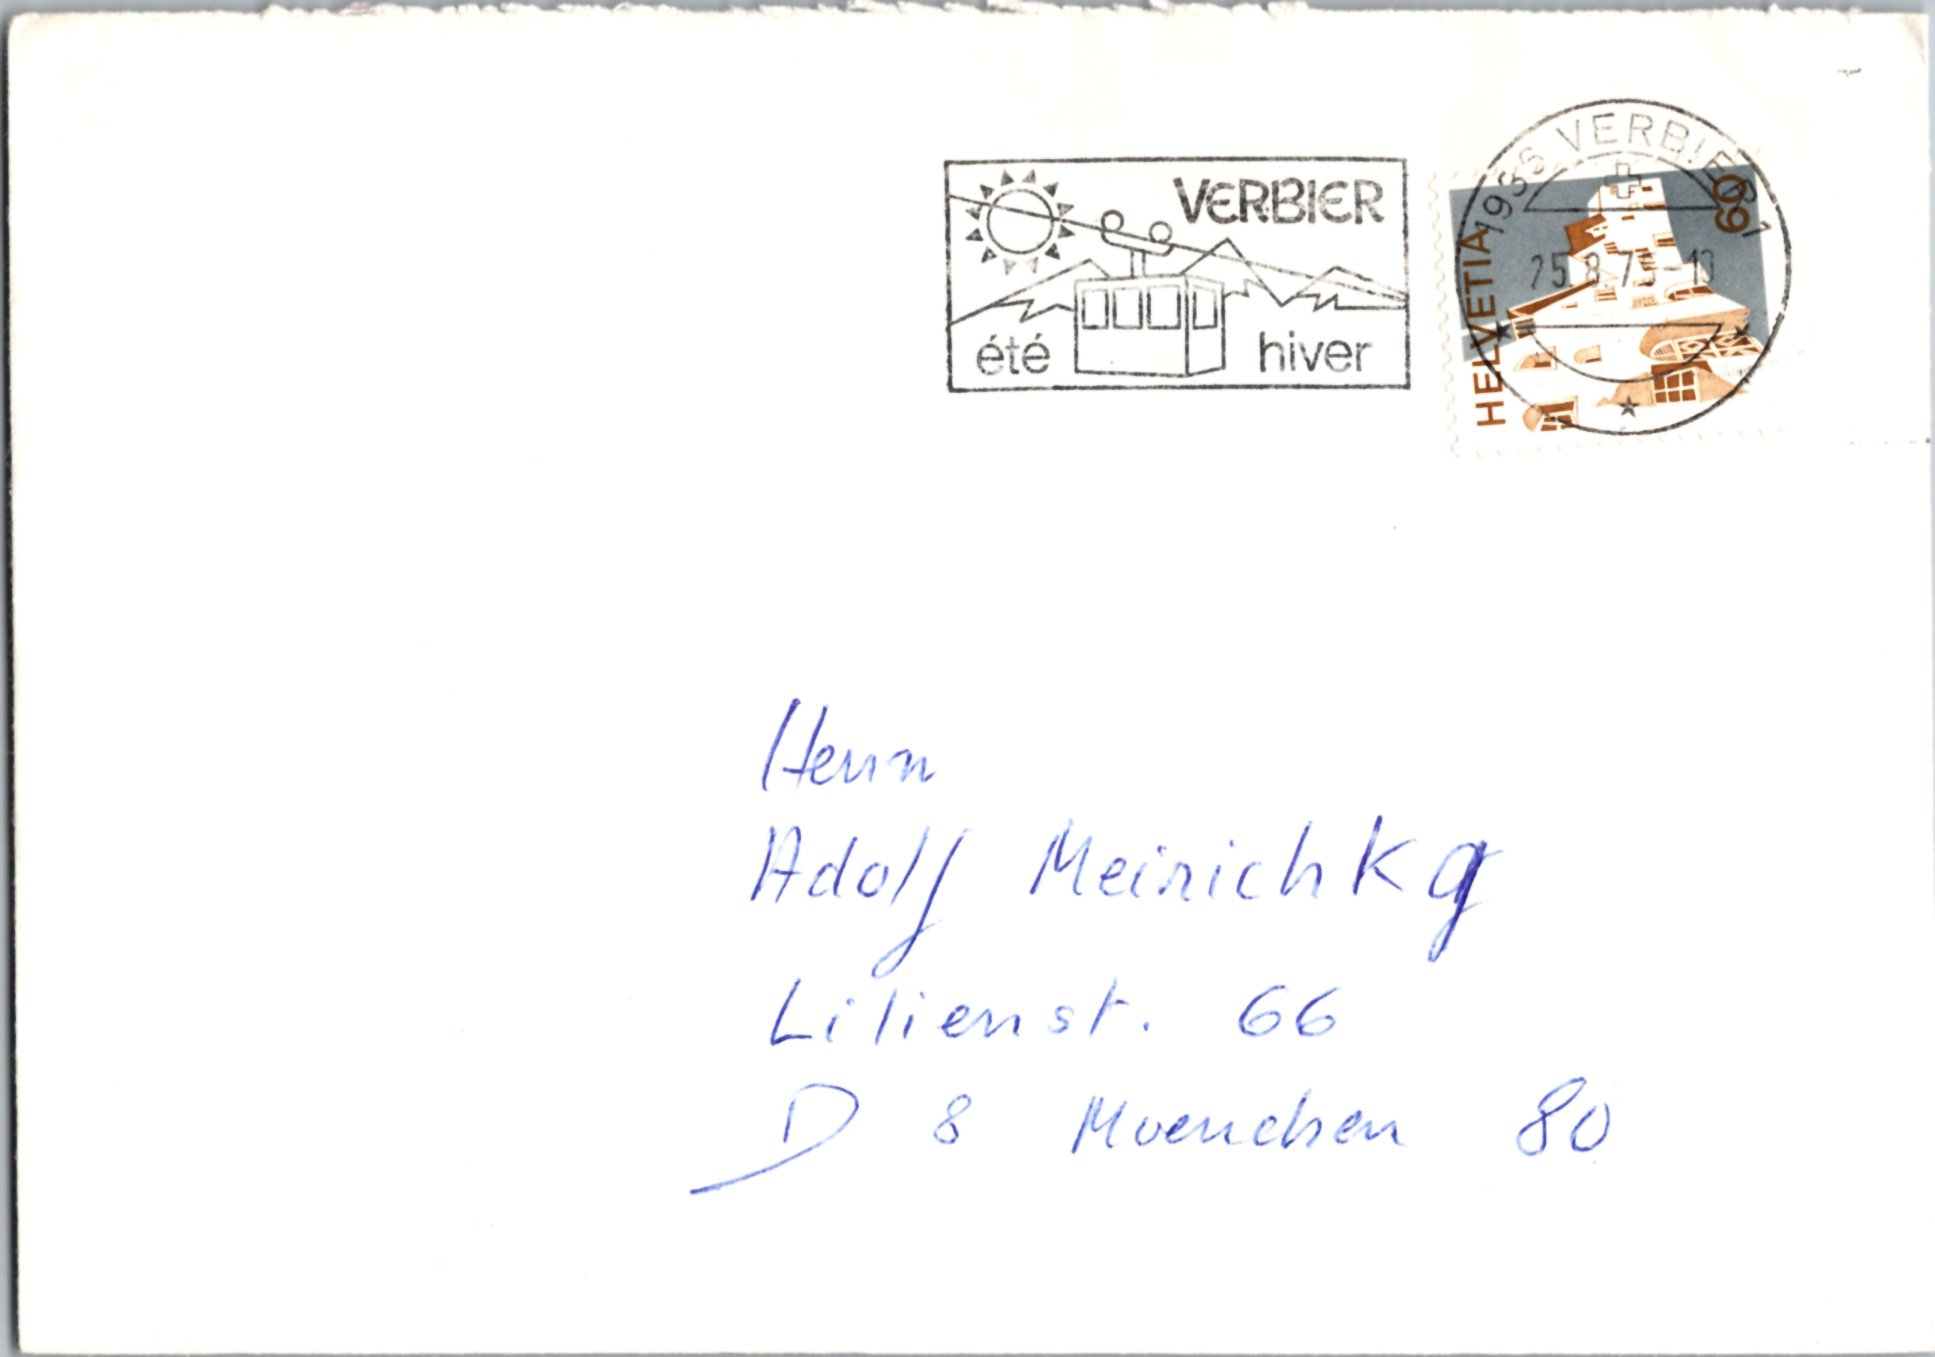 VERBIER
été hiver
VERBIER 1
HELVETIA
60
Herrn
Adolf Meinich Kg
Lilienst. 66
D 8 Muenchen 80